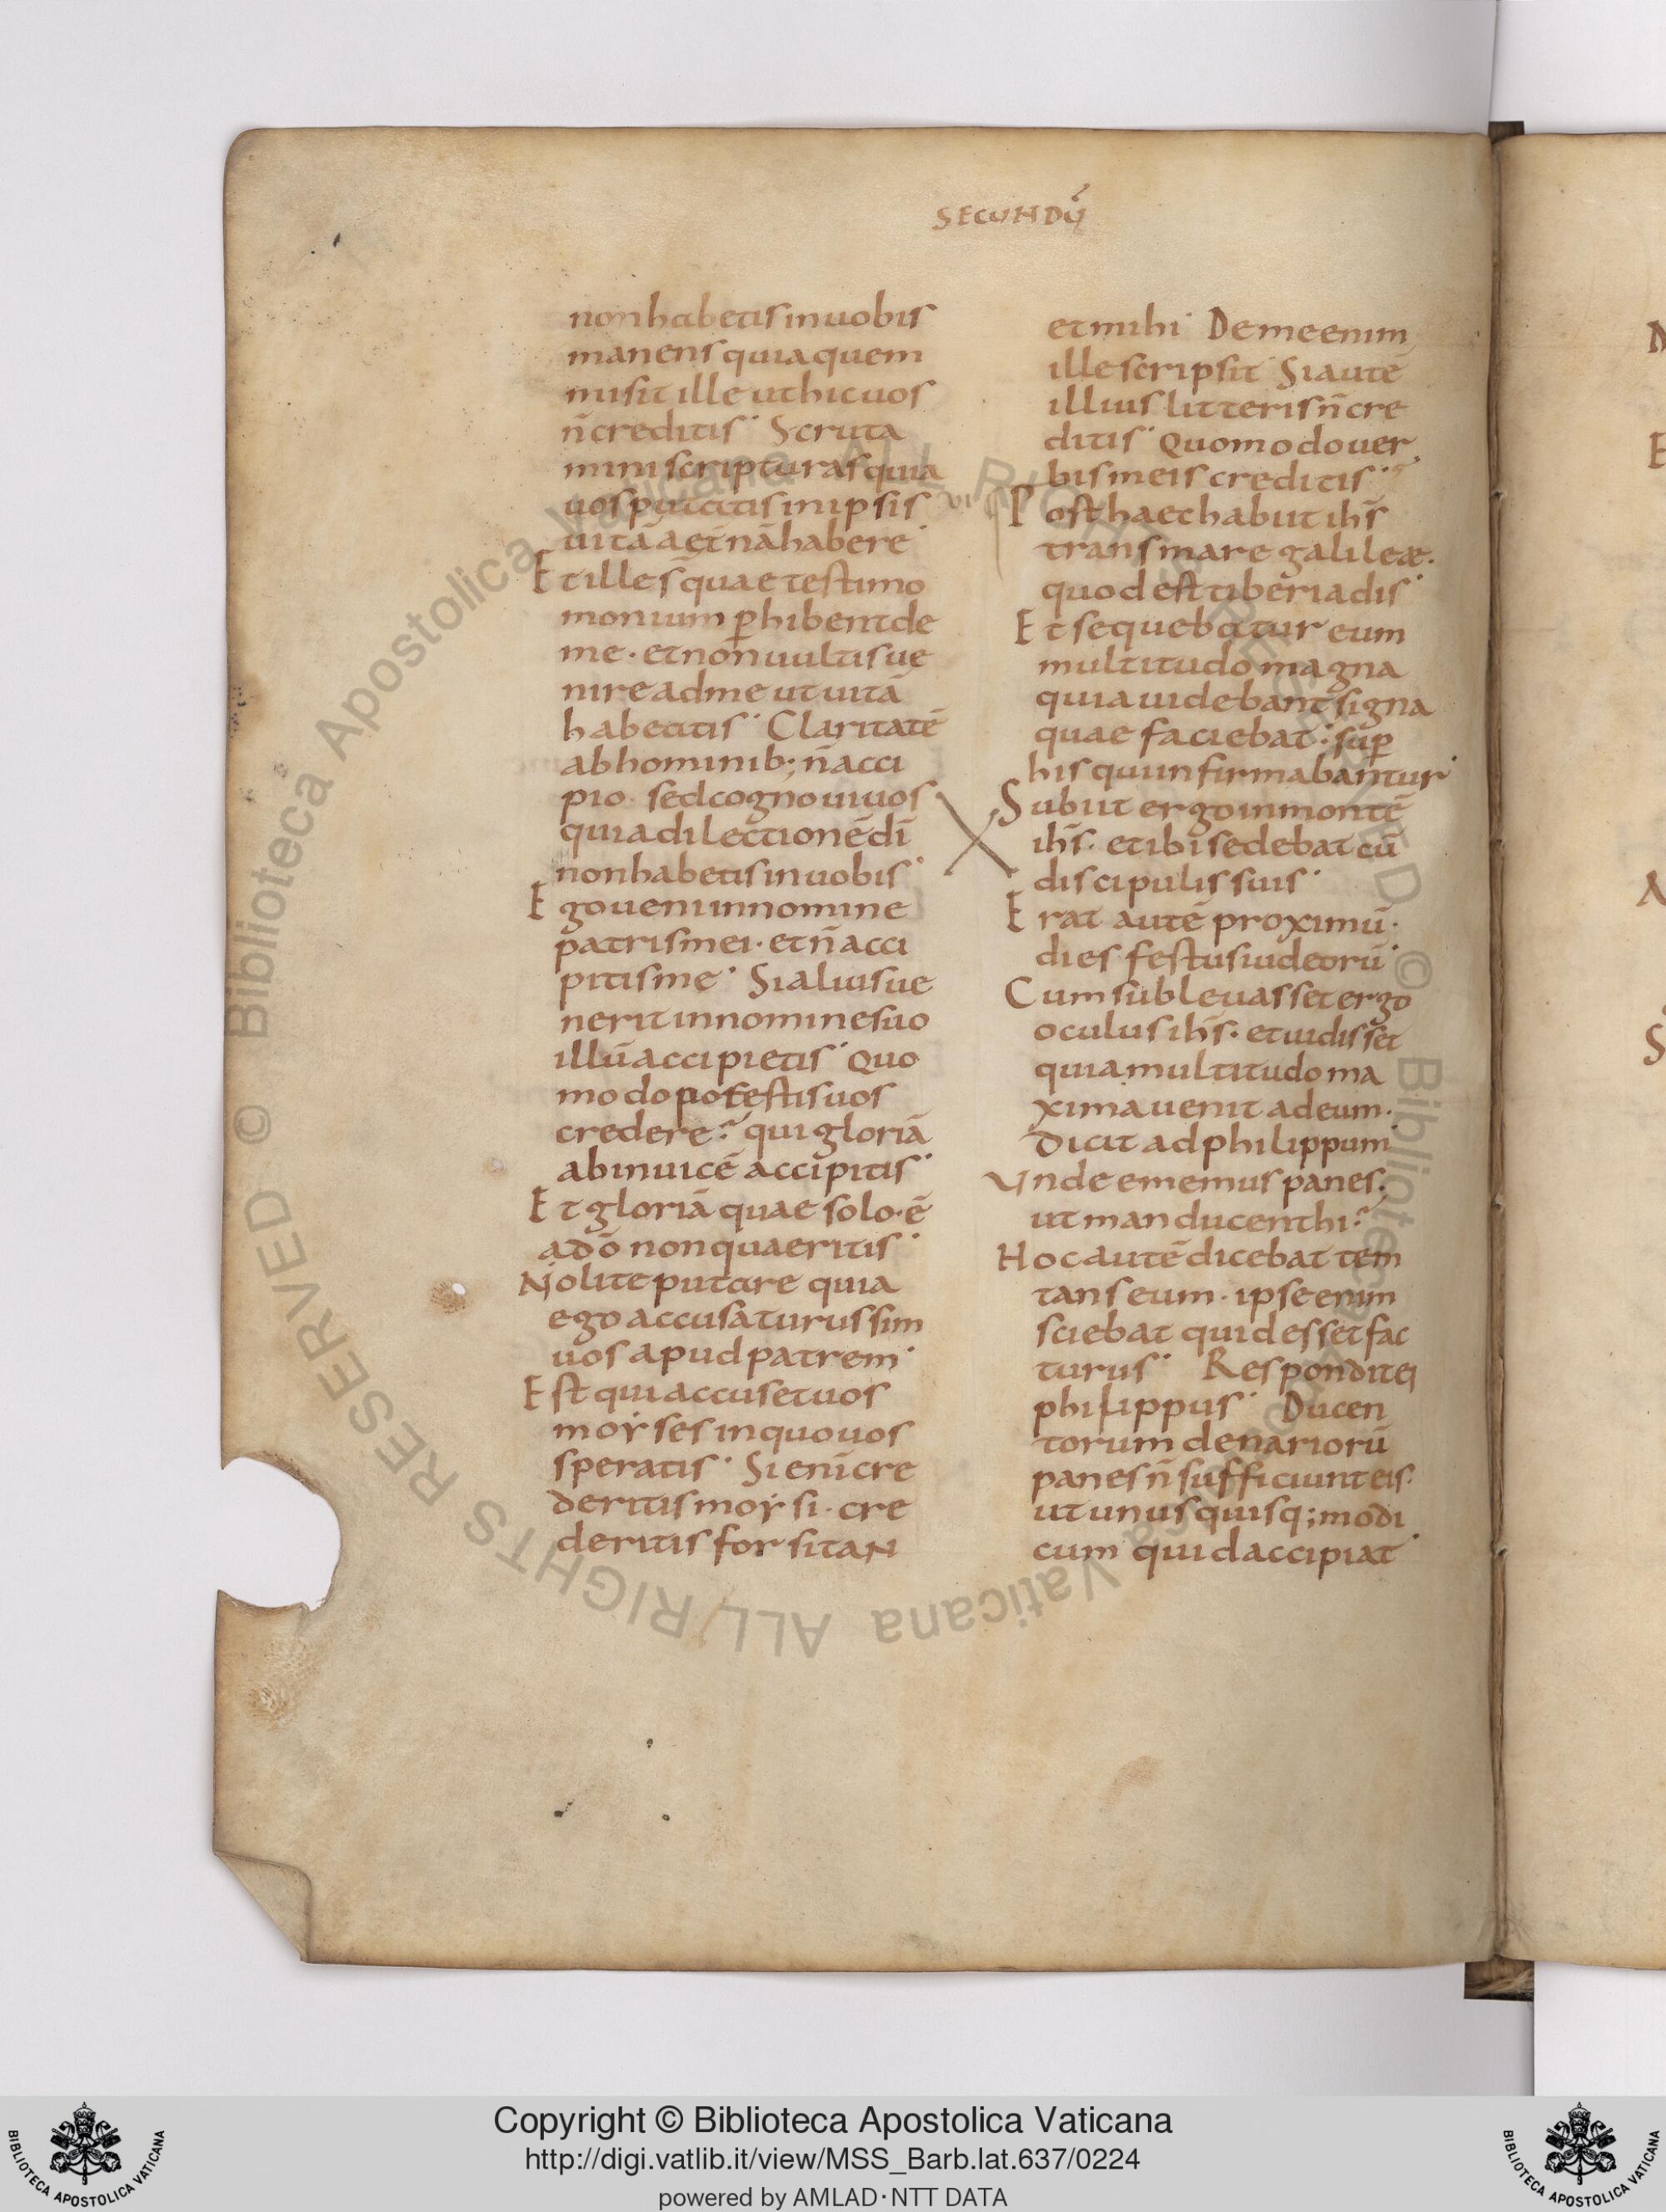 SECUNDŪ
non habetis in uobis
manens quia quem
misit ille ut hic uos
n̄ creditis· Scruta
mini scripturas quia
uos putatis in ipsis
uitā aet̄nā habere·
Et ille s̄ quae testimo
monium ꝑhibent de
me· et non uultis ue
nire ad me ut uitā
habeatis· Claritatē
ab hominib; n̄ acci
pio· sed cognoui uos
quia dilectionē dī
non habetis in uobis·
Ego ueni in nomine
patris mei· et n̄ acci
pitis me· Si alius ue
nerit in nomine suo
illū accipietis· Quo
modo potestis uos
credere? qui gloriā
ab inuicē accipitis·
Et gloriā quae solo·ē
a dō non quaeritis·
Nolite putare quia
ego accusaturus sim
uos apud patrem·
Est qui accuset uos
moẏses in quo uos
speratis· Si eni cre
deritis moẏsi· cre
deritis forsitan
et mihi· De me enim
ille scripsit· Si autē
illius litteris n̄ cre
ditis· Quomodo uer
bis meis creditis·
vi Post haec habiit ih̄s
trans mare galileæ·
quod est tiberiadis·
Et sequebatur eum
multitudo magna
quia uidebant signa
quae faciebat· suꝑ
his qui infirmabantur·
Subiit ergo in montē
ih̄s· et ibi sedebat cū
discipulis suis·
Erat autē proximū·
dies festus iudeorū·
Cum subleuasset ergo
oculus ih̄s· et uidisset
quia multitudo ma
xima uenit ad eum·
dicit ad philippum·
Unde ememus panes·
ut manducent hi?
Hoc autē dicebat tem
tans eum· ipse enim
sciebat quid esset fac
turus· Respondit ei
philippus· Ducen
torum denariorū
panes n̄ sufficiunt eis·
ut unus quisq; modi
cum quid accipiat·
© Biblioteca Apostolica Vaticana ALL RIGHTS RESERVED © Biblioteca Apostolica Vaticana ALL RIGHTS RESERVED
Copyright © Biblioteca Apostolica Vaticana
http://digi.vatlib.it/view/MSS_Barb.lat.637/0224
powered by AMLAD·NTT DATA
BIBLIOTECA APOSTOLICA VATICANA
BIBLIOTECA APOSTOLICA VATICANA